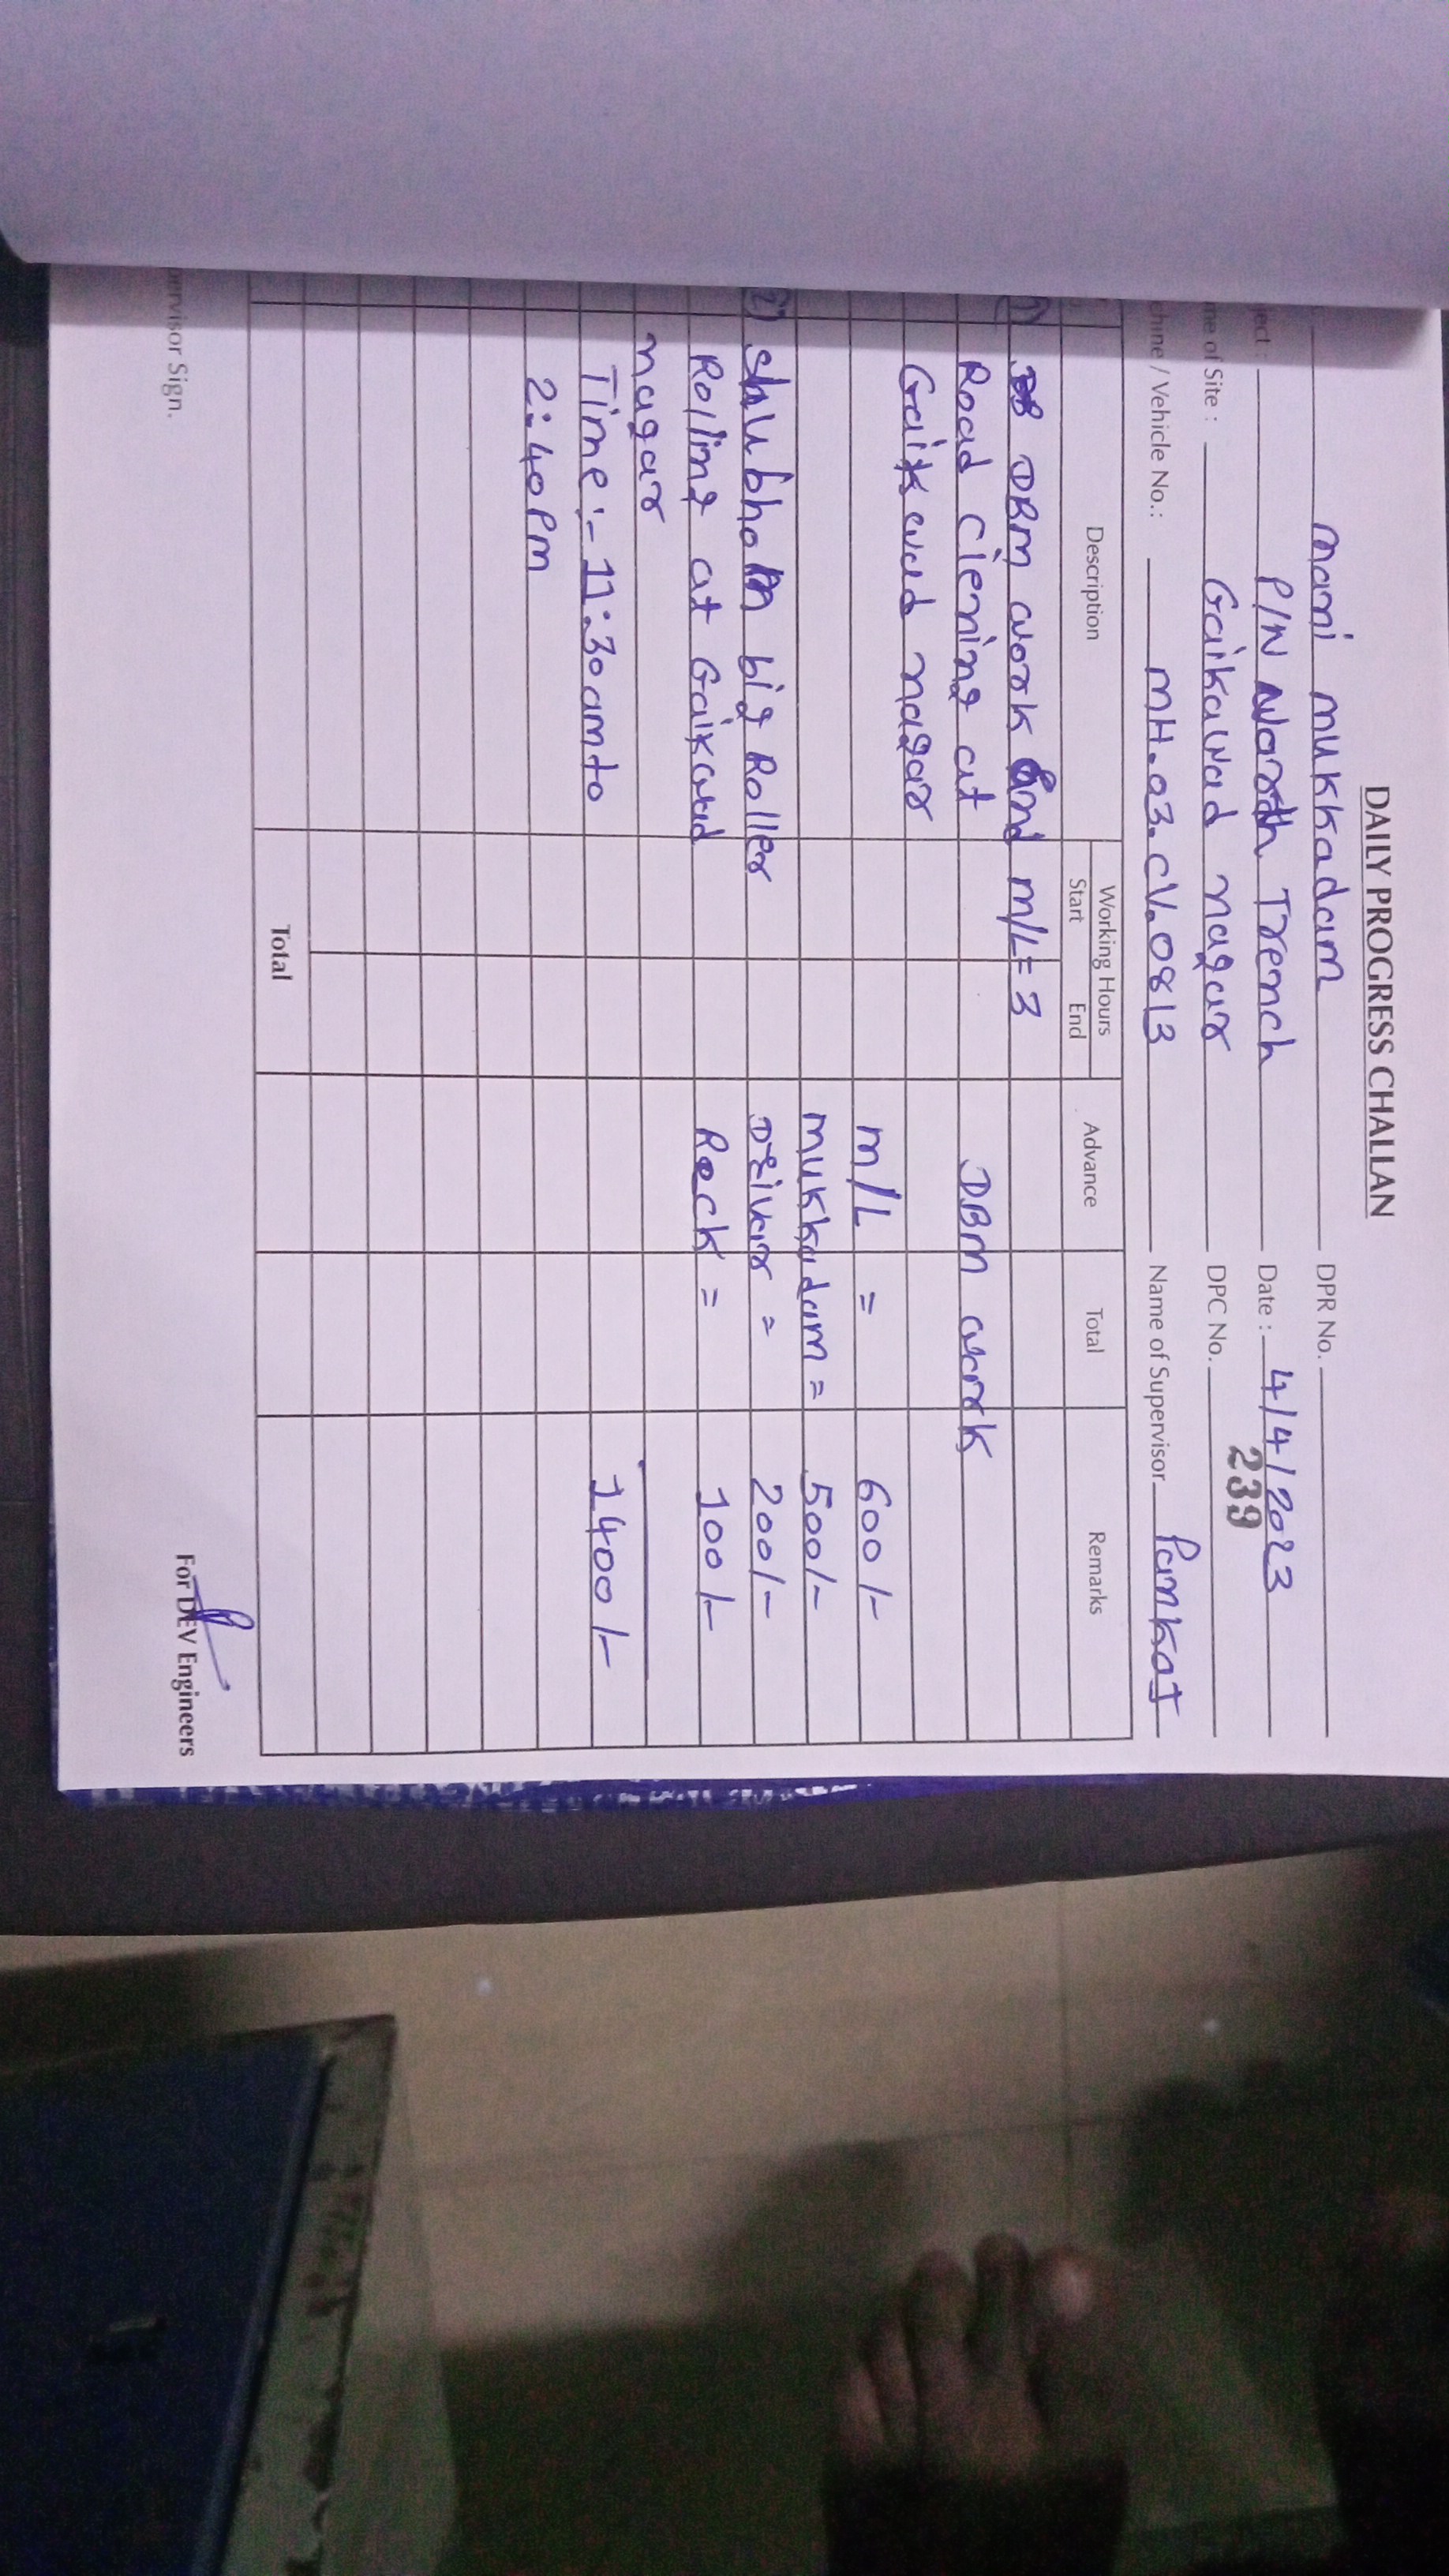 DAILY PROGRESS CHALLAN
mani mukkadam DPR No.
ject : P/N North Trench Date : 4/4/2023
me of Site : Gaikawad nagar DPC No. 239
chine / Vehicle No.: MH.03.CV.0813 Name of Supervisor Pankaj
Description Working Hours Start End Advance Total Remarks
1) DBM work and m/L=3
Road Clening at DBM work
Gaikwad nagar
m/L = 600/-
mukkadam = 500/-
2) Shubham big Roller Driver = 200/-
Rolling at Gaikwad Reck = 100/-
nagar
Time :- 11:30am to 1400/-
2:40 Pm
Total
ervisor Sign. For DEV Engineers